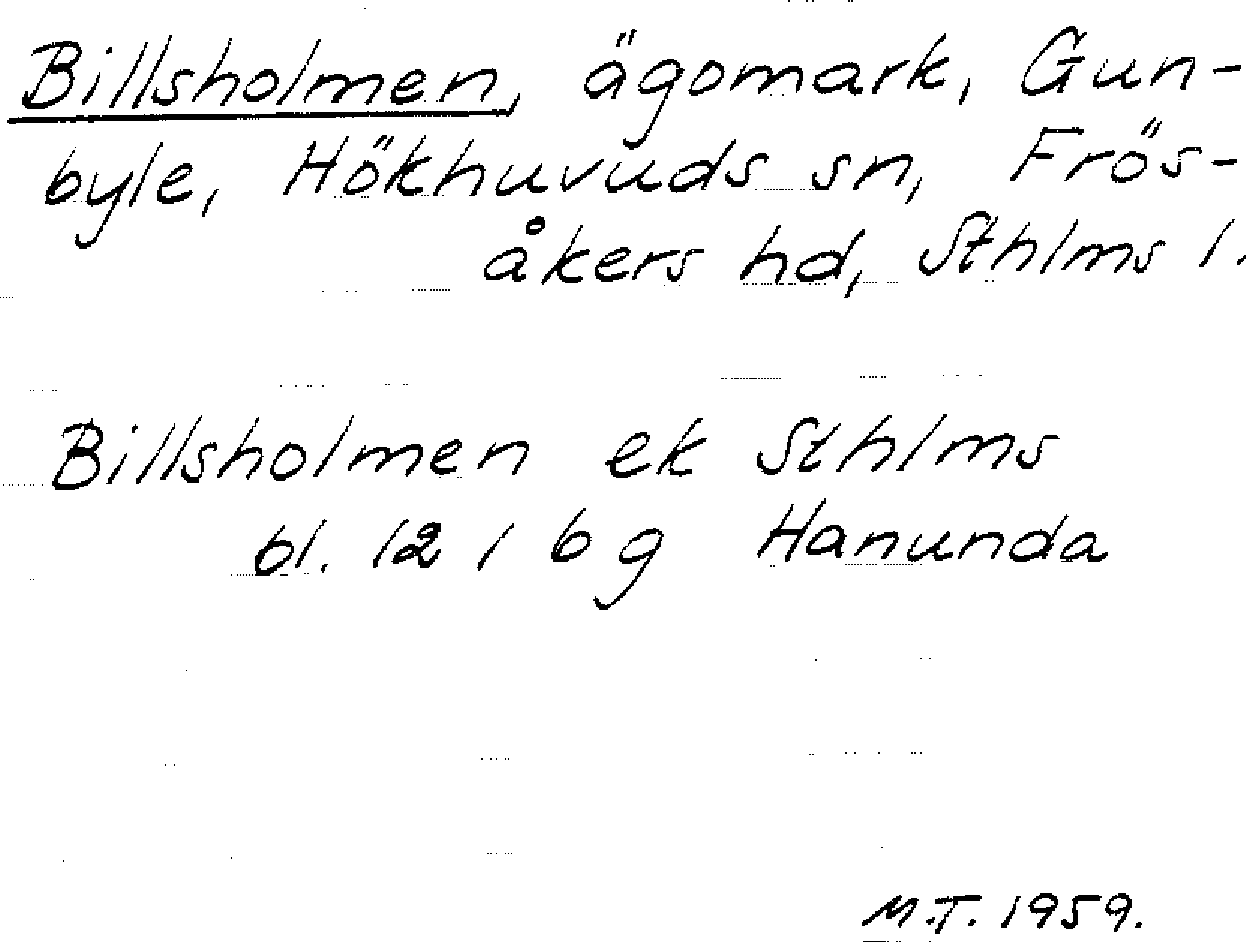 Billsholmen, ägomark, Gun-
byle, Hökhuvuds sn, Frös-
åkers hd, Sthlms l.
Billsholmen ek Sthlms
bl. 12 I 6 g Hanunda
M.T. 1959.